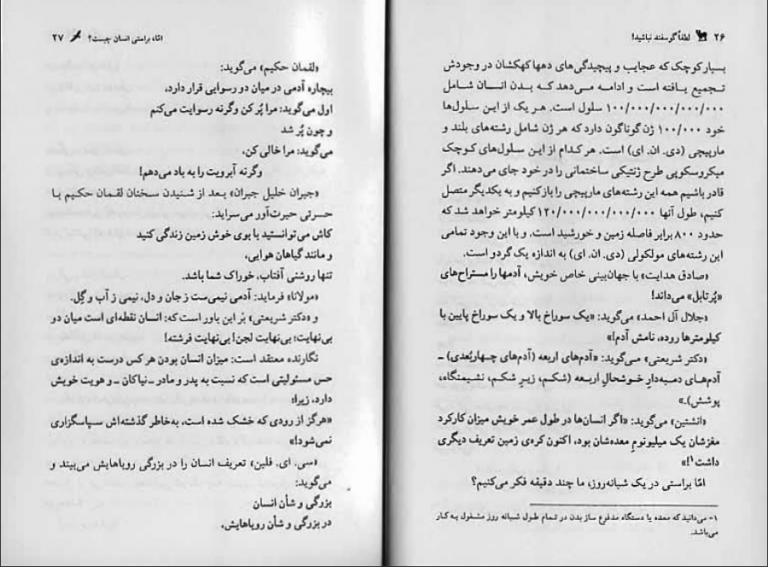 ۲۶ لطفاً گوسفند نباشید!
بسیار کوچک که عجایب و پیچیدگی‌های دهها کهکشان در وجودش
تجمیع یافته است و ادامه می‌دهد که بدن انسان شامل
۱۰۰/۰۰۰/۰۰۰/۰۰۰/۰۰۰ سلول است. هر یک از این سلول‌ها
خود ۱۰۰/۰۰۰ ژن گوناگون دارد که هر ژن شامل رشته‌های بلند و
مارپیچی (دی. ان. ای) است. هر کدام از این سلول‌های کوچک
میکروسکوپی طرح ژنتیکی ساختمانی را در خود جای می‌دهند. اگر
قادر باشیم همه این رشته‌های مارپیچی را باز کنیم و به یکدیگر متصل
کنیم، طول آنها ۱۲۰/۰۰۰/۰۰۰/۰۰۰ کیلومتر خواهد شد که
حدود ۸۰۰ برابر فاصله زمین و خورشید است. و با این وجود تمامی
این رشته‌های مولکولی (دی. ان. ای) به اندازه یک گردو است.
«صادق هدایت» با جهان‌بینی خاص خویش، آدمها را مستراح‌های
«پُرتابل» می‌داند!
«جلال آل احمد» می‌گوید: «یک سوراخ بالا و یک سوراخ پایین با
کیلومترها روده، نامش آدم!»
«دکتر شریعتی» می‌گوید: «آدم‌های اربعه (آدم‌های چهاربُعدی) ـ
آدم‌های دمبه‌دارِ خوشحالِ اربعه (شکم، زیرِ شکم، نشیمنگاه،
پوشش).»
«انشتین» می‌گوید: «اگر انسان‌ها در طول عمر خویش میزان کارکرد
مغزشان یک میلیونوم معده‌شان بود، اکنون کره‌ی زمین تعریف دیگری
داشت۱!»
امّا براستی در یک شبانه‌روز، ما چند دقیقه فکر می‌کنیم؟
۱- می‌دانید که معده یا دستگاه مدفوع ساز بدن در تمام طول شبانه روز مشغول به کار
می‌باشد.
امّا، براستی انسان چیست؟ ۲۷
«لقمان حکیم» می‌گوید:
بیچاره آدمی در میان دو رسوایی قرار دارد،
اول می‌گوید: مرا پُر کن وگرنه رسوایت می‌کنم
و چون پُر شد
می‌گوید: مرا خالی کن،
وگرنه آبرویت را به باد می‌دهم!
«جبران خلیل جبران» بعد از شنیدن سخنان لقمان حکیم با
حسرتی حیرت‌آور می‌سراید:
کاش می‌توانستید با بوی خوش زمین زندگی کنید
و مانند گیاهان هوایی،
تنها روشنی آفتاب، خوراک شما باشد.
«مولانا» فرماید: آدمی نیمی‌ست ز جان و دل، نیمی ز آب و گِل.
و «دکتر شریعتی» بَر این باور است که: انسان نقطه‌ای است میان دو
بی‌نهایت؛ بی‌نهایت لجن! بی‌نهایت فرشته!
نگارنده معتقد است: میزان انسان بودن هر کس درست به اندازه‌ی
حس مسئولیتی است که نسبت به پدر و مادر ـ نیاکان ـ و هویت خویش
دارد، زیرا:
«هرگز از رودی که خشک شده است، به‌خاطر گذشته‌اش سپاسگزاری
نمی‌شود!»
«سی. ای. فلین» تعریف انسان را در بزرگی رویاهایش می‌بیند و
می‌گوید:
بزرگی و شأن انسان
در بزرگی و شأن رویاهایش،